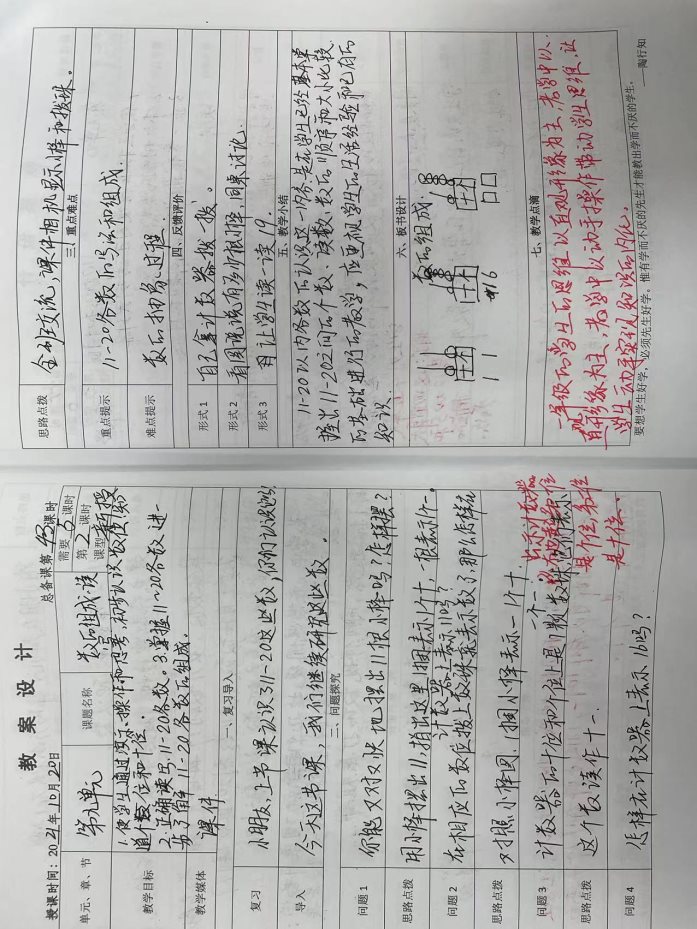 教 案 设 计
授课时间：2021年10月20日
总备课第43课时
单元、章、节 第九单元
课题名称 数的组成、读写
需要5课时
第2课时
课型 新授
教学目标 1.使学生通过演示、操作和思考，初步认识数位
个位和十位。
2.正确读写11-20各数。3.掌握11~20各数进一
步了解11-20各数的组成。
教学媒体 课件
一、复习导入
复习 小朋友，上节课认识了11-20这些数，你们认识吗
导入 今天这节课，我们继续研究这些数。
二、问题探究
问题1 你能又对又快地摆出11根小棒吗？怎样摆？
思路点拨 用小棒摆出11，指出这里1捆表示1个十，1根表示1个一。
问题2 计数器上表示11吗？
在相应的数位拨上数珠来表示数了，那么怎样在
思路点拨 对照小棒图，1捆小棒表示一个十，
问题3 计数器的十位和个位上是1颗数珠也分别表示
思路点拨 这个数读作十一。
问题4 怎样在计数器上表示16吗？
是个位，
是十位、
思路点拨 全班交流，课件相机显示小棒和拨珠。
三、重点难点
重点提示 11-20各数的写法和组成.
难点提示 数的抽象过程
四、反馈评价
形式1 自己拿计数器拨一拨。
形式2 看图说说有多少根小棒，同桌讨论.
形式3 再让学生读一读19.
五、教学小结
11-20以内各数的认识这一内容是在学生已经基本掌
握出11-20之间的个数、读数、数的顺序和大小比较
的基础进行的教学，应重视学生的生活经验和已有的
知识.
六、板书设计
数的组成
1 1
十 个
十 个
十 个
1 1
16
七、教学点滴
一年级的学生的思维以直观形象为主，教学中以
直观形象为主，教学中以动手操作带动学生思维，让
学生
要想学生好学，必须先生好学。惟有学而不厌的先生才能教出学而不厌的学生。
——陶行知